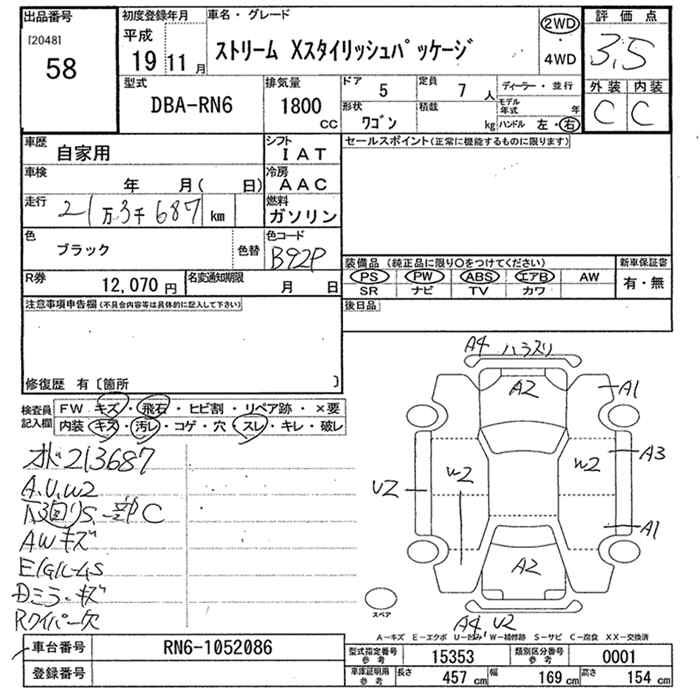 出品番号
[2048]
58
初度登録年月
平成
19 11 月
車名・グレード
ストリーム Xスタイリッシュパッケージ
2WD
・
4WD
評 価 点
3,5
型式
DBA-RN6
排気量
1800
CC
ドア 5
定員 7 人
形状 ワゴン
積載 kg
ディーラー・並行
モデル年式 年
ハンドル 左・右
外装 内装
C C
車歴
自家用
シフト
IAT
セールスポイント(正常に機能するものに限ります)
車検
年 月( 日)
冷房
AAC
走行
21万3千687 km
燃料
ガソリン
色
ブラック
色替
色コード
B92P
装備品 (純正品に限り○をつけてください)
新車保証書
PS PW ABS エアB AW
SR ナビ TV カワ
有・無
R券
12,070 円
名変通知期限
月 日
後日品
注意事項申告欄(不具合内容等は具体的に記入して下さい)
修復歴 有〔箇所 〕
検査員
記入欄
FW キズ・飛石・ヒビ割・リペア跡・×要
内装 キズ・汚レ・コゲ・穴・スレ・キレ・破レ
213687
A.U.W2
S.一部C
AWキズ
Dミラーキズ
Rワイパー欠
A4 ハラスリ
A2
A1
W2
W2
A3
U2
A1
A2
A4, U2
スペア
A−キズ E−エクボ U−凹み W−補修跡 S−サビ C−腐食 XX−交換済
車台番号
RN6-1052086
登録番号
型式指定番号
参考
15353
類別区分番号
参考
0001
車庫証明用
参考
長さ 457 cm
幅 169 cm
高さ 154 cm